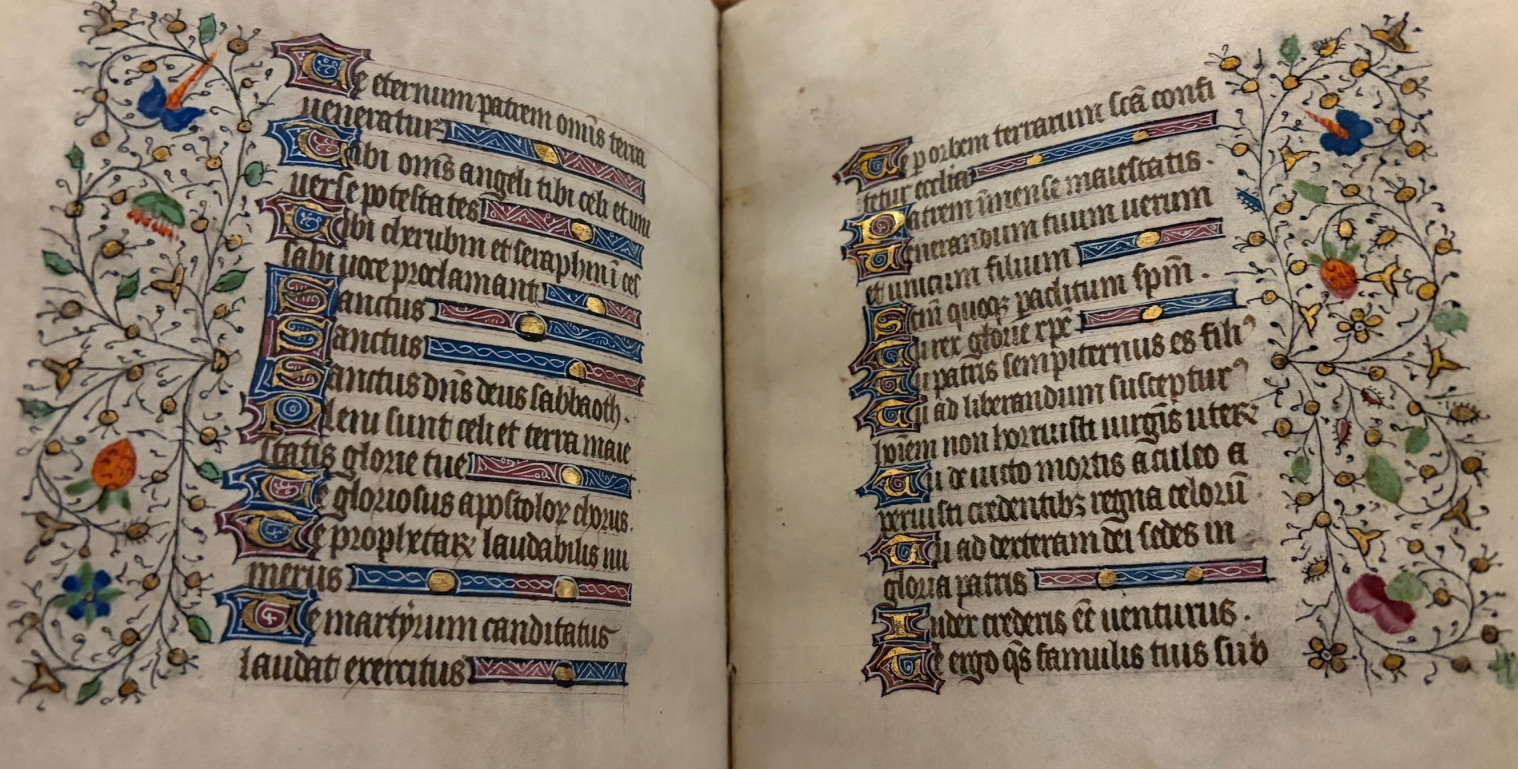 Te eternum patrem om̅s terra
ueneratur
Tibi om̅s angeli tibi celi et uni
uerse potestates
Tibi cherubin et seraphin i̅ ces
sabi uoce proclamant
Sanctus
Sanctus
Sanctus dn̅s deus sabbaoth.
Pleni sunt celi et terra maie
statis glorie tue
Te gloriosus apostoloꝝ chorus.
Te prophetaꝝ laudabilis nu
merus
Te martÿrum canditatus
laudat exercitus
Te p orbem terrarum sca̅ confi
tetur ecclia
Patrem i̅mense maiestatis.
Uenerandum tuum uerum
et unicum filium
Sc̅m quoqꝫ paclitum sp̅m.
Tu rex glorie xp̅e
Tu patris sempiternus es filiꝰ
Tu ad liberandum suscepturꝰ
ho̅iem non horruisti uirgis uteꝝ
Tu deuicto mortis aculeo a
peruisti credentibꝫ regna celoru̅.
Tu ad dexteram dei̅ sedes in
gloria patris
Iudex crederis ee̅ uenturus.
Te ergo qs̅ famulis tuis sub